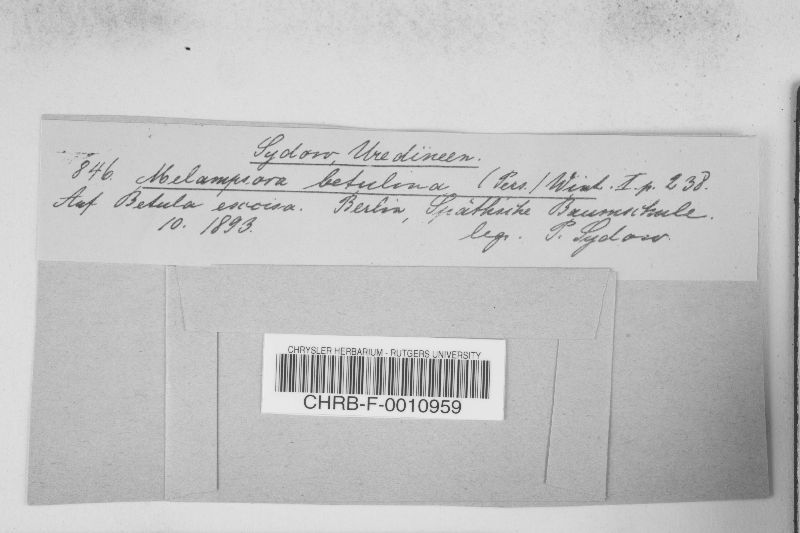 Sydow, Uredineen.
846. Melampsora betulina (Pers.) Wint. I. p. 238.
Auf Betula excisa. Berlin, Späthsche Baumschule.
10. 1893. leg. P. Sydow.
CHRYSLER HERBARIUM - RUTGERS UNIVERSITY
CHRB-F-0010959